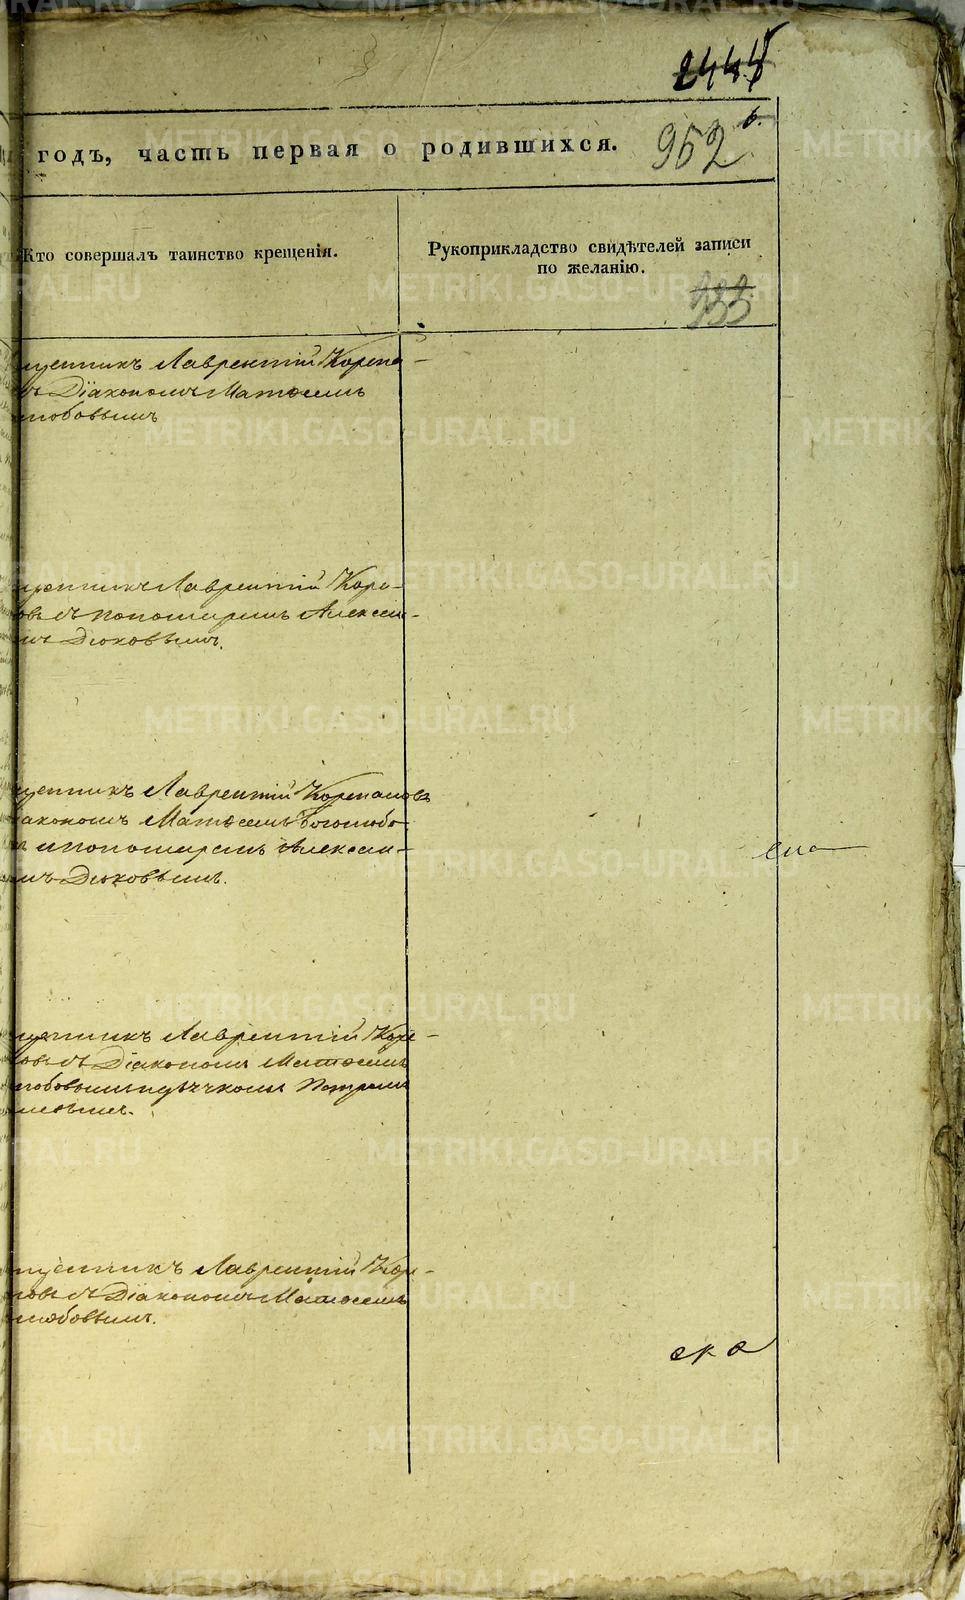 2444
годъ, часть первая о родившихся.
952
Кто совершалъ таинство крещенія.
Рукоприкладство свидѣтелей записи
по желанію.
щенникъ Лаврентій Корепа-
Діакономъ Матѳеемъ
любовымъ
щенникъ Лаврентій Коре-
овъ съ пономаремъ Алексѣ-
мъ Дюковымъ.
щенникъ Лаврентій Корепановъ
іакономъ Матѳеемъ Боголюбо-
и пономаремъ Алексѣе-
мъ Дюковымъ.
щенникъ Лаврентій Коре-
овъ съ Діакономъ Матѳеемъ
любовымъ и дьячкомъ Петромъ
щенникъ Лаврентій Коре-
новъ съ Діакономъ Матѳеемъ
любовымъ.
ска
METRIKI.GASO-URAL.RU